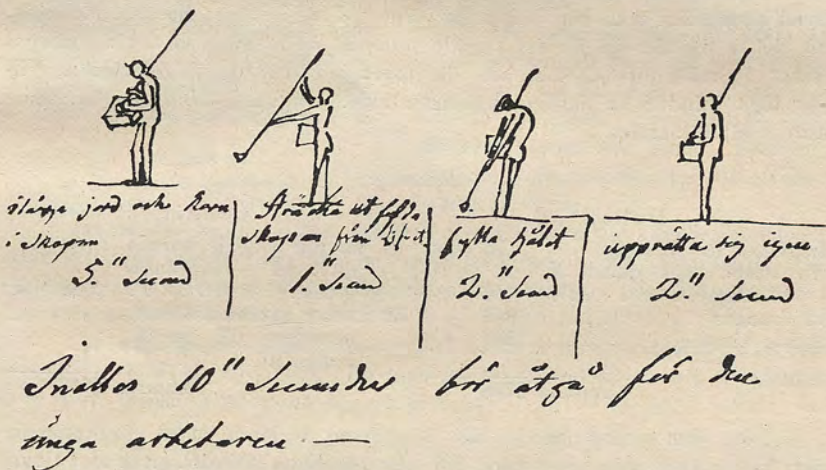 släppa jord och korn
i skopan
5." Secund
Sträcka ut fyllda
skopan från lifvet
1." Secund
fylla hålet
2." Secund
upprätta sig igen
2." Secund
Inalles 10" Secunder bör åtgå för den
unga arbetaren —